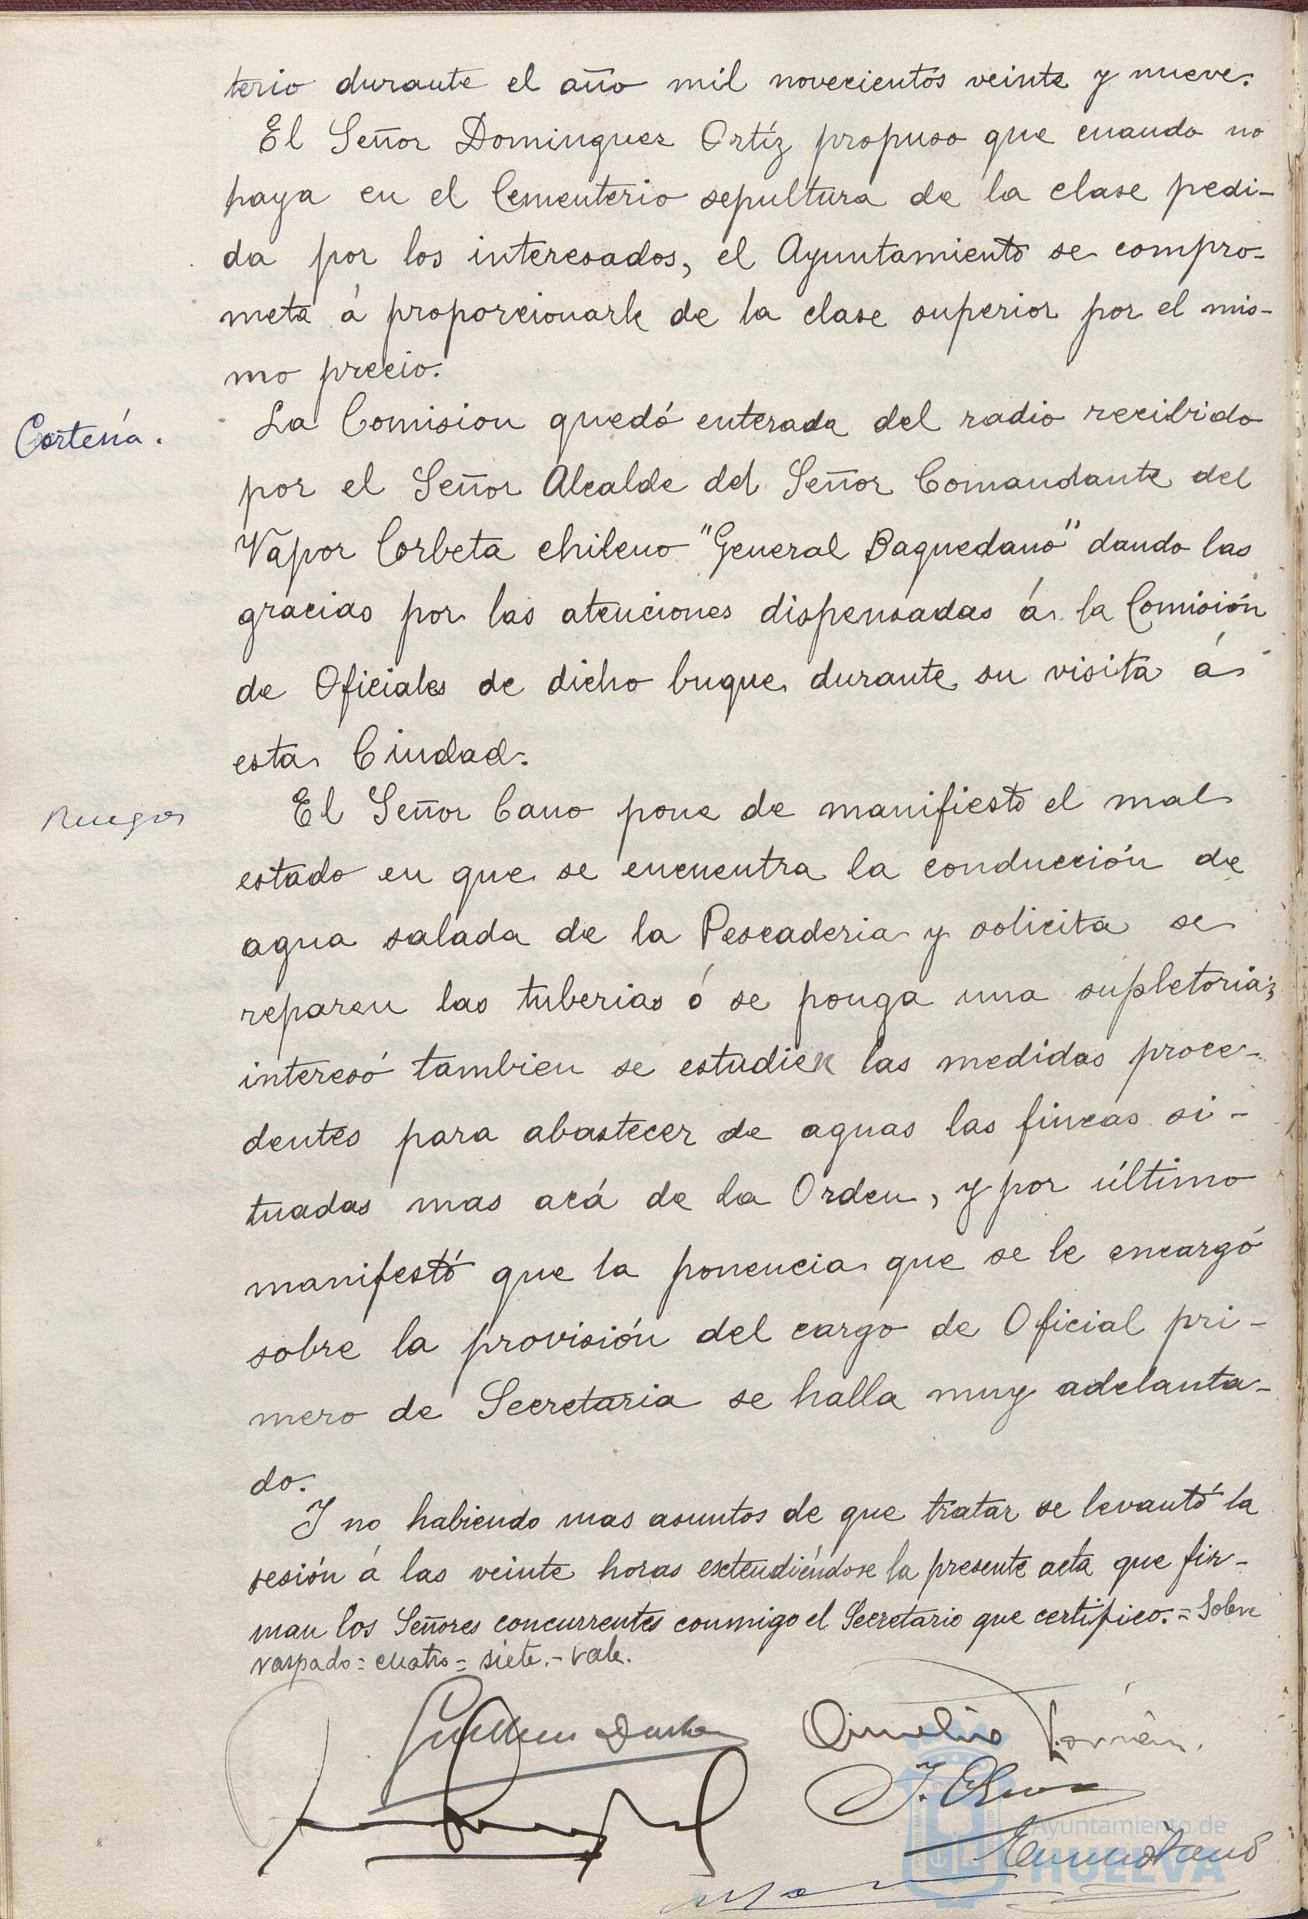 terio durante el año mil novecientos veinte y nueve.
El Señor Dominguez Ortíz propuso que cuando no
haya en el Cementerio sepultura de la clase pedi-
da por los interesados, el Ayuntamiento se compro-
meta á proporcionarle de la clase superior por el mis-
mo precio.
Cortesía.
La Comision quedó enterada del radio recibido
por el Señor Alcalde del Señor Comandante del
Vapor Corbeta chileno "General Baquedano" dando las
gracias por las atenciones dispensadas á la Comisión
de Oficiales de dicho buque durante su visita á
esta Ciudad.
Ruegos
El Señor Cano pone de manifiesto el mal
estado en que se encuentra la conducción de
agua salada de la Pescaderia y solicita se
reparen las tuberias ó se ponga una supletoria;
interesó tambien se estudien las medidas proce-
dentes para abastecer de aguas las fincas si-
tuadas mas acá de la Orden, y por último
manifestó que la ponencia que se le encargó
sobre la provisión del cargo de Oficial pri-
mero de Secretaria se halla muy adelanta-
do.
Y no habiendo mas asuntos de que tratar se levantó la
sesión á las veinte horas extendiéndose la presente acta que fir-
man los Señores concurrentes conmigo el Secretario que certifico.= Sobre
raspado= cuatro= siete.- Vale.
Aurelio Román.
Ayuntamiento de
HUELVA